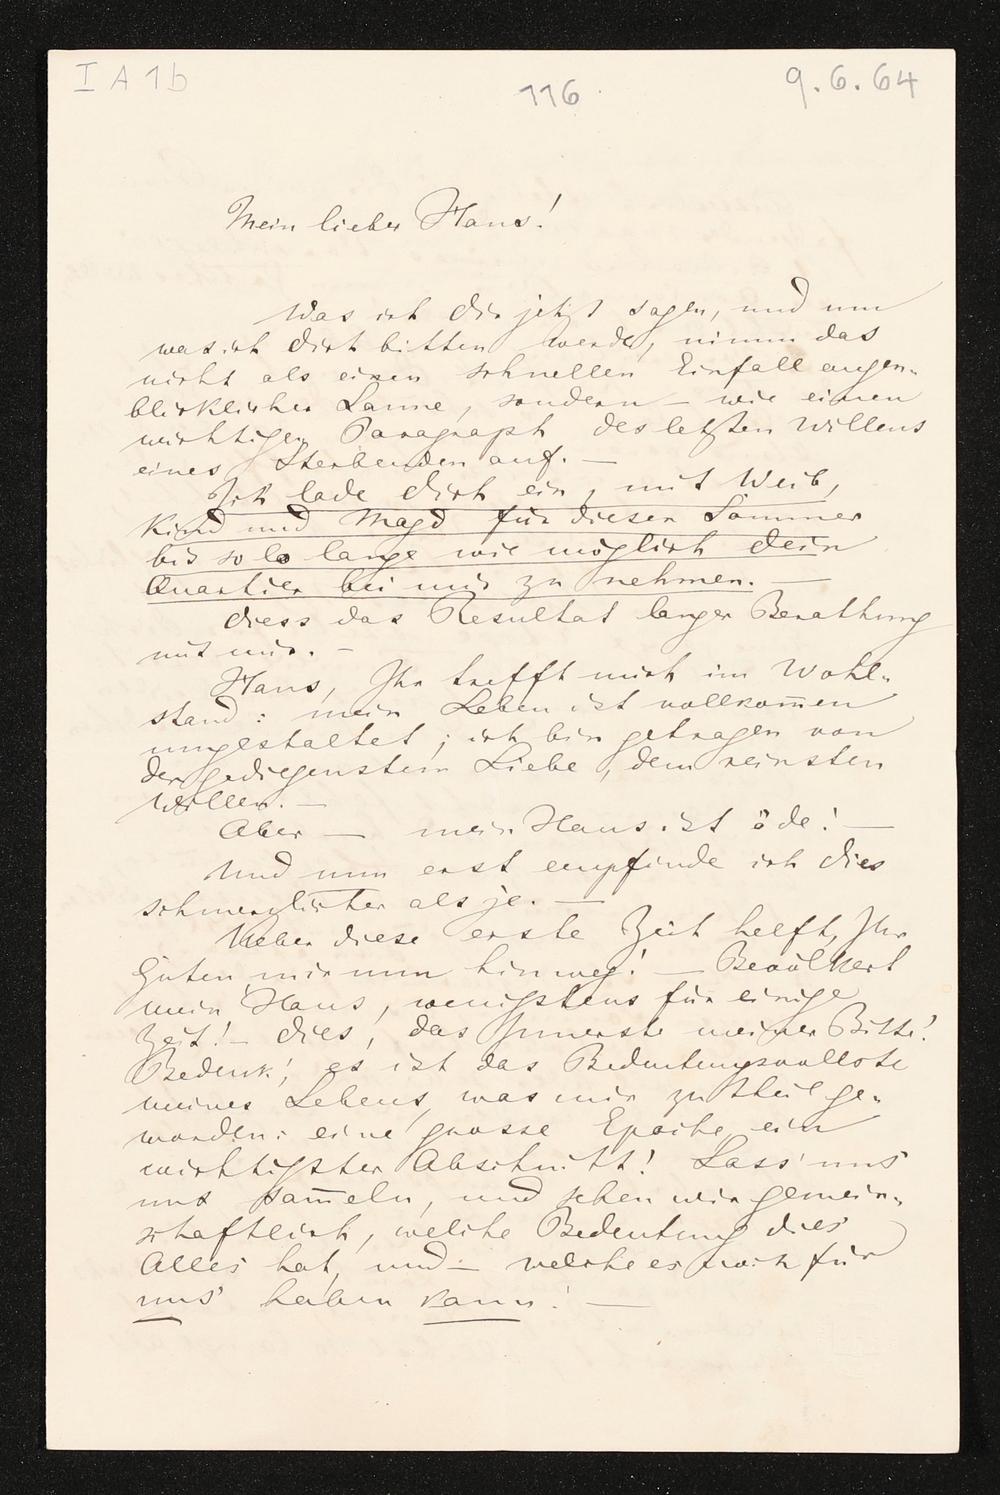 I A 1b
116
9.6.64
Mein lieber Hans!
Was ich Dir jetzt sagen, und um
was ich Dich bitten werde, nimm das
nicht als einen schnellen Einfall augen-
blicklicher Laune, sondern – wie einen
wichtigen Paragraph des letzten Willens
eines Sterbenden auf. –
Ich lade Dich ein, mit Weib,
Kind und Magd für diesen Sommer
bis so lange wie möglich Dein
Quartier bei mir zu nehmen. –
Diess das Resultat langer Berathung
mit mir. –
Hans, Ihr trefft mich im Wohl-
stand: mein Leben ist vollkom̅en
umgestaltet; ich bin getragen von
der gediegensten Liebe, dem reinsten
Willen. –
Aber – mein Haus ist öde! –
Und nun erst empfinde ich dies
schmerzlicher als je. –
Ueber diese erste Zeit helft, Ihr
Guten, mir nun hinweg! – Bevölkert
mein Haus, wenigstens für einige
Zeit! – Dies, das Innerste meiner Bitte!
Bedenk', es ist das Bedeutungsvollste
meines Lebens, was mir zu theil ge-
worden: eine grosse Epoche, ein
wichtigster Abschnitt! Lass' uns
uns sam̅eln, und sehen wir gemein-
schaftlich, welche Bedeutung dies
Alles hat, und – welche es noch für
uns haben kann! –